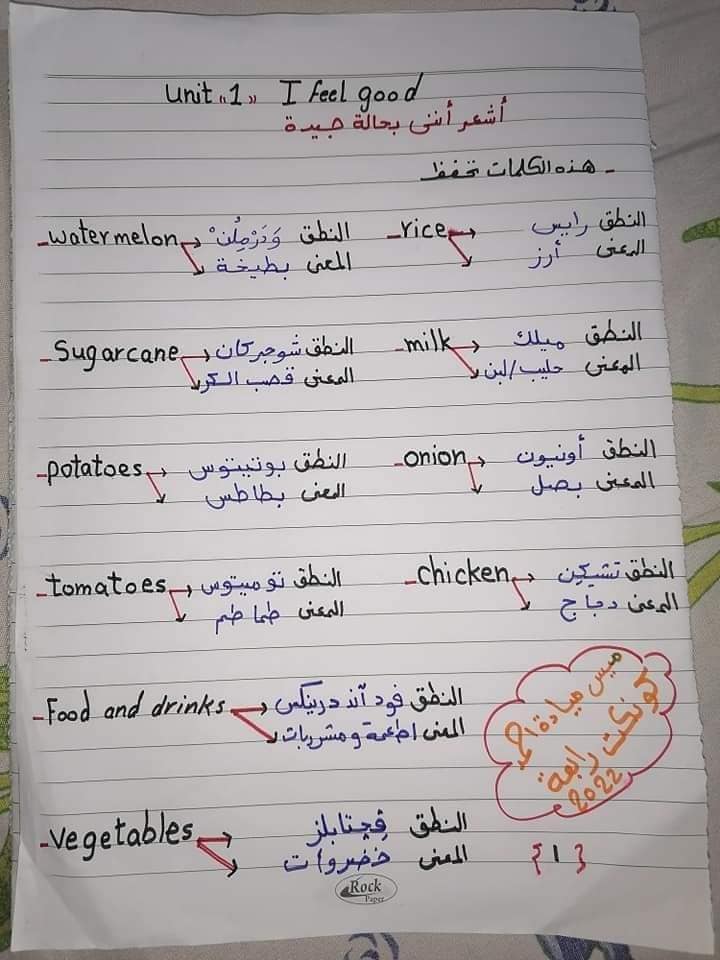 Unit "1" I feel good
أشعر أننى بحالة جيدة
- هذه الكلمات تحفظ
- watermelon النطق وَدَرْمِلُنْ
المعنى بطيخة
- rice النطق رايس
المعنى أرز
- Sugarcane النطق شوجركان
المعنى قصب السكر
- milk النطق ميلك
المعنى حليب/لبن
- potatoes النطق بوتيتوس
المعنى بطاطس
- onion النطق أونيون
المعنى بصل
- tomatoes النطق توميتوس
المعنى طماطم
- chicken النطق تشيكِن
المعنى دجاج
- Food and drinks النطق فود آند درينكس
المعنى اطعمة ومشروبات
- vegetables النطق ڤچتابلز
المعنى خضروات
ميس ميادة احمد
كونكت رابعة
2022
{1}
Rock
Paper